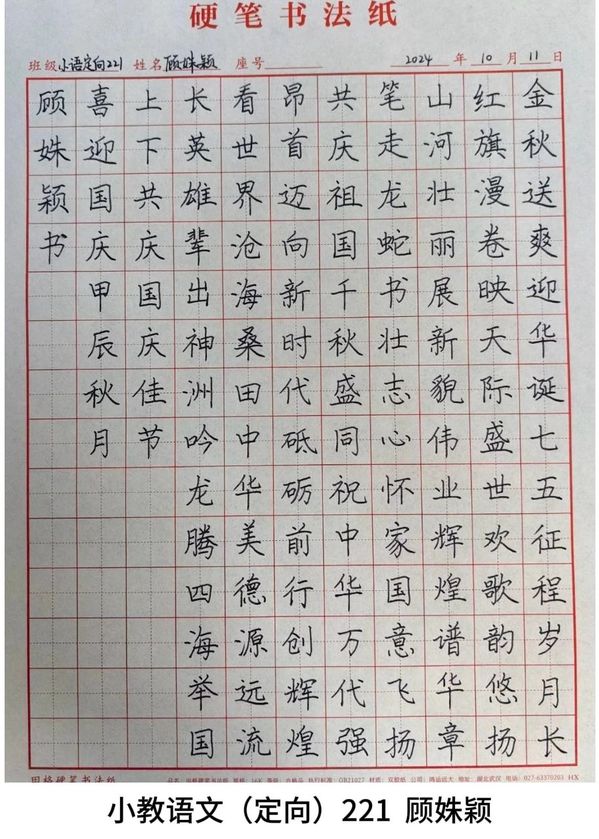 硬笔书法纸
班级 小语定向221 姓名 顾姝颖 座号 2024 年 10 月 11 日
金秋送爽迎华诞七五征程岁月长
红旗漫卷映天际盛世欢歌韵悠扬
山河壮丽展新貌伟业辉煌谱华章
笔走龙蛇书壮志心怀家国意飞扬
共庆祖国千秋盛同祝中华万代强
昂首迈向新时代砥砺前行创辉煌
看世界沧海桑田中华美德源远流
长英雄辈出神洲吟龙腾四海举国
上下共庆国庆佳节
喜迎国庆甲辰秋月
顾姝颖书
田格硬笔书法纸
小教语文（定向）221 顾姝颖